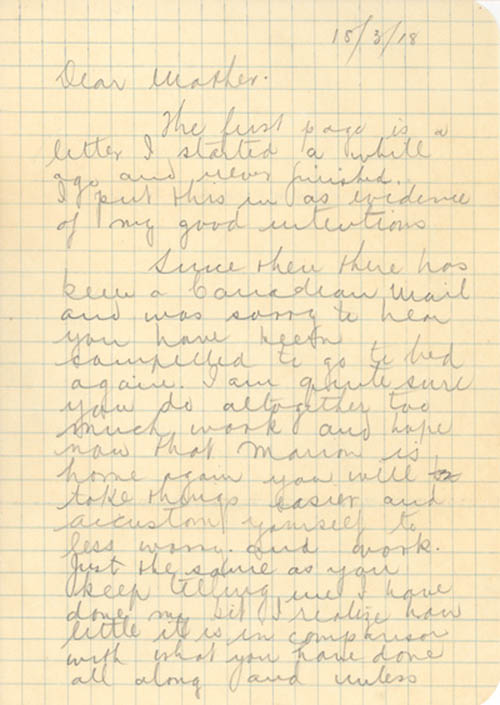 15/3/18
Dear Mother.
The first page is a
letter I started a while
ago and never finished.
I put this in as evidence
of my good intentions
Since then there has
been a Canadian Mail
and was sorry to hear
you have been
compelled to go to bed
again. I am quite sure
you do altogether too
much work and hope
now that Marion is
home again you will
take things easier and
accustom yourself to
less worry and work.
Just the same as you
keep telling me I have
done my bit I realize how
little it is in comparison
with what you have done
all along and unless